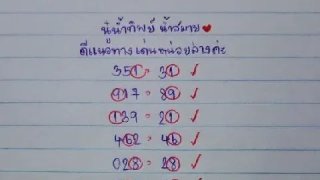 นี่น้ำทิพย์ น้ำสบาย
ดีแนวทางเด่นหน่อยล่างค่ะ
351 = 31 ✓
917 = 89 ✓
139 = 21 ✓
462 = 46 ✓
028 = 28 ✓